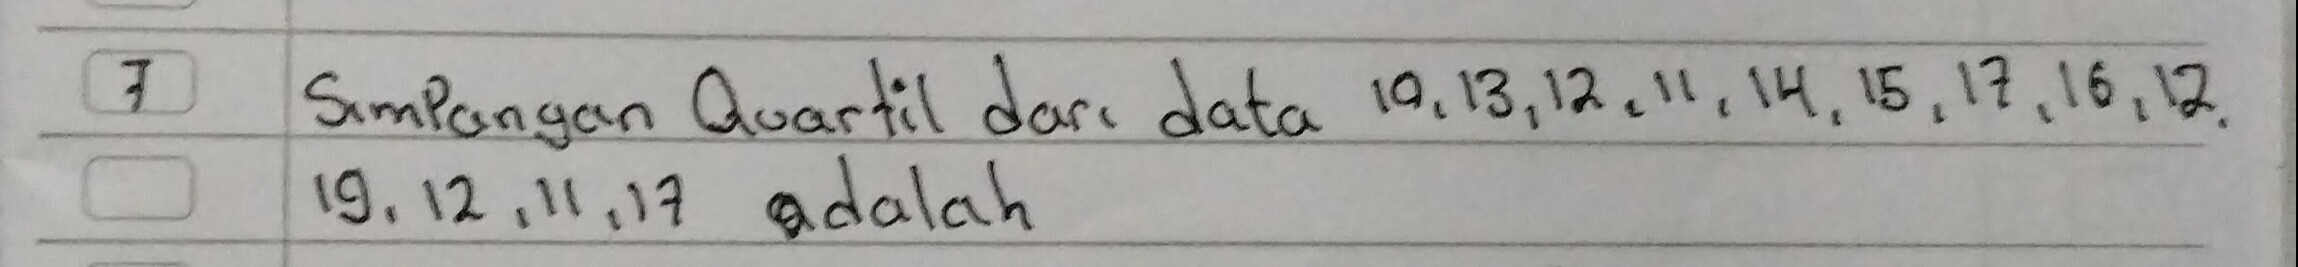 7 Simpangan Quartil dari data 10, 13, 12, 11, 14, 15, 17, 16, 12,
19, 12, 11, 17 adalah